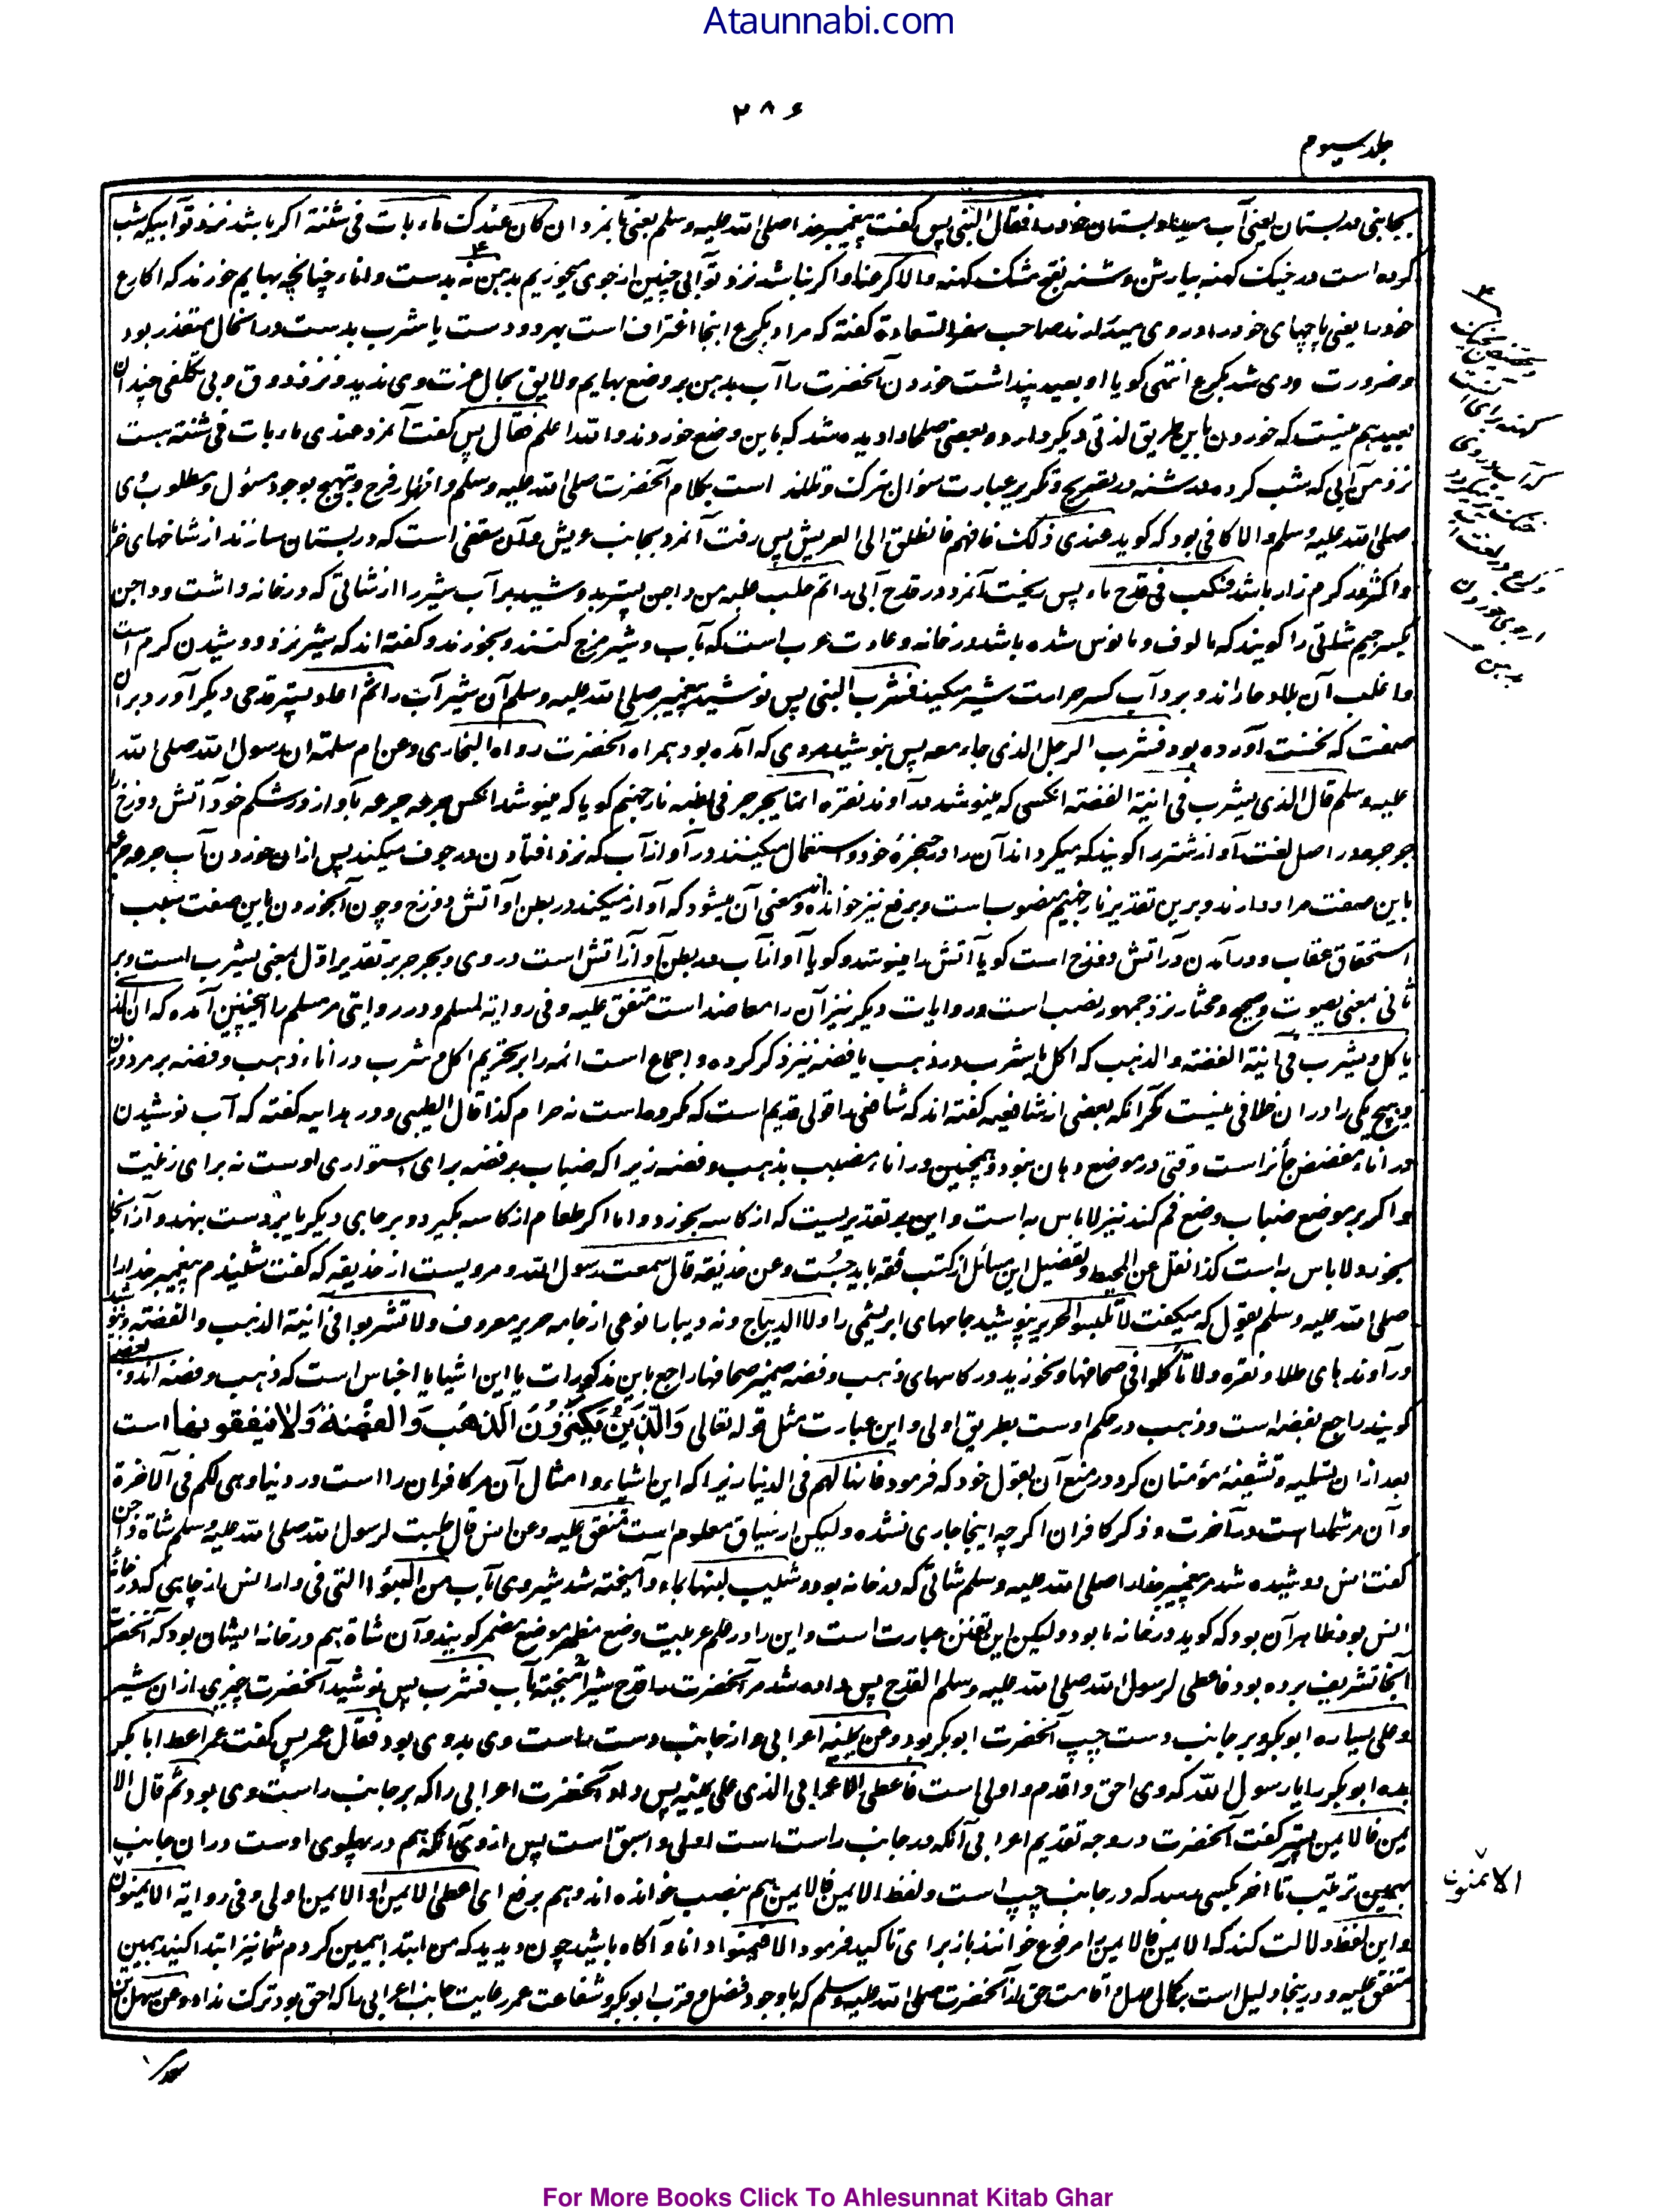 Ataunnabi.com
۲۸۶
جلد سیوم
بجانبی در بستان یعنی آب میداد بستان خود را فقال النبی پس گفت پیغمبر خدا صلی الله علیه وسلم یعنی بآنمرد ان کان عندک ماء بات فی شنة اگر باشد نزد تو آبیکه شب
کرده است در خیک کهنه بیارش و شنه بفتح مشک کهنه والا کرعنا و اگر نباشد نزد تو آبی چنین از جوی میخوریم بدهن نه بدست و اناء چنانچه بهایم خورند که اکارع
خود را یعنی پاچهای خود را در وی میدارند صاحب سفر السعادة گفته که مراد بکرع اینجا اغتراف است بهر دو دست یا شرب بدست در انحال متعذر بود
و ضرورت ودی شد بکرع انتهی گویا او بعید پنداشت خوردن آنحضرت را آب بدهن بر وضع بهایم و لایق بحال عزت وی ندید و نزد ذوق و بی تکلفی چندان
بعید هم نیست که خوردن باین طریق لذتی دیگر دارد و بعضی صلحا را دیده شد که باین وضع خوردند والله اعلم فقال پس گفت آنمرد عندی ماء بات فی شنة هست
نزد من آبی که شب کرده در شنه در تصریح و تکریر عبارت سوال تبرک و تلذذ است بکلام آنحضرت صلی الله علیه وسلم و اظهار فرح و تبهج بوجود مسئول و مطلوب وی
صلی الله علیه وسلم والا کافی بود که گوید عندی ذلک فافهم فانطلق الی العریش پس رفت آنمرد بجانب عریش و آن سقفی است که در بستان سازند از شاخهای
و اکثر در کرم زار باشد فسکب فی قدح ماء پس ریخت آنمرد در قدح آبی را ثم حلب علیه من داجن پستر بدوشید بر آب شیر را از شاتی که در خانه داشت و داجن
بکسر جیم شاتی را گویند که مالوف و مانوس شده باشد در خانه و عادت عرب است که بآب و شیر مزج کنند و بخورند و گفته اند که شیر نزد دوشیدن گرم است
و اغلب آن بلاد حاراند و برد آب کسر حرارت شیر میکند فشرب النبی پس نوشید پیغمبر صلی الله علیه وسلم آن شیر آب را ثم اعاد پستر قدحی دیگر آورد بر آن
صفت که نخست آورده بود فشرب الرجل الذی جاء معه پس بنوشید مردی که آمده بود همراه آنحضرت رواه البخاری وعن ام سلمة ان رسول الله صلی الله
علیه وسلم قال الذی یشرب فی انیة الفضة انکسی که مینوشد در آوند نقره انما یجرجر فی بطنه نار جهنم گویا که مینوشد انکس جرعه جرعه بآواز در شکم خود آتش دوزخ را
جرجره در اصل لغت آواز شتر را گویند که میگرداند آن را در حنجرهٔ خود و استعمال میکنند در آواز آب که نزد افتادن در جوف میکند پس ازان خوردن آب جرعه جرعه
باین صفت مراد دارند و برین تقدیر نار جهنم منصوب است و برفع نیز خوانده اند و معنی آن میشود که آواز میکند در بطن او آتش دوزخ و چون آبخوردن باین صفت سبب
استحقاق عقاب و درآمدن در آتش دوزخ است گویا آتش را مینوشد و گویا آواز آب در بطن او آواز آتش است در وی و یجرجر بر تقدیر اول بمعنی یشرب است و بر
ثانی بمعنی یصوت و صحیح و مختار نزد جمهور نصب است و روایات دیگر نیز آن را معاضد است متفق علیه و فی روایة لمسلم و در روایتی مر مسلم را اینچنین آمده که ان الذی
یاکل و یشرب فی انیة الفضة والذهب که اکل با شرب و ذهب با فضه نیز ذکر کرده و اجماع است ائمه را بر تحریم اکل و شرب در اناء ذهب و فضه بر مرد و زن
و هیچ یکی را در ان خلافی نیست مگر آنکه بعضی از شافعیه گفته اند که شافعی را قولی قدیم است که مکروه است نه حرام کذا قال الطیبی و در هدایه گفته که آب نوشیدن
در اناء مفضض جائز است وقتی در موضع دهان نبود و همچنین در اناء مضبب بذهب و فضه زیرا که ضباب بر فضه برای استواری اوست نه برای زینت
و اگر بر موضع ضباب وضع فم کند نیز لا باس به است و این بر تقدیریست که از کاسه بخورد و اما اگر طعام از کاسه بگیرد و بر جای دیگر یا بر دست بنهد و از آنجا
بخورد لا باس به است کذا نقل عن المحیط و تفصیل این مسائل از کتب فقه باید جست وعن حذیفة قال سمعت رسول الله و مرویست از حذیفه که گفت شنیدم پیغمبر خدا را
صلی الله علیه وسلم یقول که میگفت لا تلبسوا الحریر نپوشید جامهای ابریشمی را ولا الدیباج و نه دیبا را نوعی از جامه حریر معروف ولا تشربوا فی انیة الذهب والفضة و ننوشید
در آوندهای طلا و نقره ولا تاکلوا فی صحافها و نخورید در کاسهای ذهب و فضه ضمیر صحافها راجع باین مذکورات یا این اشیا یا اجناس است که ذهب و فضه اند و بعضی
گویند راجع بفضه است و ذهب در حکم اوست بطریق اولی و این عبارت مثل قوله تعالی وَالَّذِینَ یَکنِزُونَ الذَّهَبَ وَالفِضَّةَ وَلاَ ینفقونها است
بعد ازان تسلیه و تشفیهٔ مؤمنان کرد در منع آن بقول خود که فرمود فانها لهم فی الدنیا زیرا که این اشیاء و امثال آن مر کافران را است در دنیا وهی لکم فی الآخرة
و آن مر شما را است در آخرت و ذکر کافران اگرچه اینجا جاری نشده ولیکن از سیاق معلوم است متفق علیه وعن انس قال حلبت لرسول الله صلی الله علیه وسلم شاة داجن
گفت انس دوشیده شد مر پیغمبر خدا را صلی الله علیه وسلم شاتی که در خانه بود وشیب لبنها بماء و آمیخته شد شیر وی بآب من البئر التی فی دار انس از چاهی که در خانهٔ
انس بود ظاهر آن بود که گوید در خانه ما بود ولیکن این تفنن عبارت است و این را در علم عربیت وضع مظهر موضع مضمر گویند و آن شاة هم در خانه ایشان بود که آنحضرت
آنجا تشریف برده بود فاعطی لرسول الله صلی الله علیه وسلم القدح پس داده شد مر آنحضرت را قدح شیر آمیخته بآب فشرب پس نوشید آنحضرت چیزی ازان شیر
وعلی یساره ابو بکر و بر جانب دست چپ آنحضرت ابو بکر بود وعن یمینه اعرابی و از جانب دست راست وی بدوی بود فقال عمر پس گفت عمر اعط ابا بکر
بده ابو بکر را یا رسول الله که وی احق و اقدم و اولی است فاعطی الاعرابی الذی علی یمینه پس داد آنحضرت اعرابی را که بر جانب راست وی بود ثم قال الا
یمن فالایمن پستر گفت آنحضرت در وجه تقدیم اعرابی آنکه در جانب راست است اولی و اسبق است پس از وی آنکه هم در پهلوی اوست دران جانب
بهمین ترتیب تا آخر بکسی رسد که در جانب چپ است و لفظ الایمن فالایمن هم بنصب خوانده اند و هم برفع ای اعطی الایمن او الایمن اولی و فی روایة الایمنون
و این لفظ دلالت کند که الایمن فالایمن را مرفوع خوانند باز برای تاکید فرمود الا فیمنوا دانا و آگاه باشید چون دیدید که من ابتدا بیمین کردم شما نیز ابتدا کنید بیمین
متفق علیه و درینجا دلیل است بکمال عدل و اقامت حق از آنحضرت صلی الله علیه وسلم که باوجود فضل و قرب ابو بکر و شفاعت عمر رعایت جانب اعرابی را که احق بود ترک نداد وعن سهل بن
الایمنون
سعد
For More Books Click To Ahlesunnat Kitab Ghar